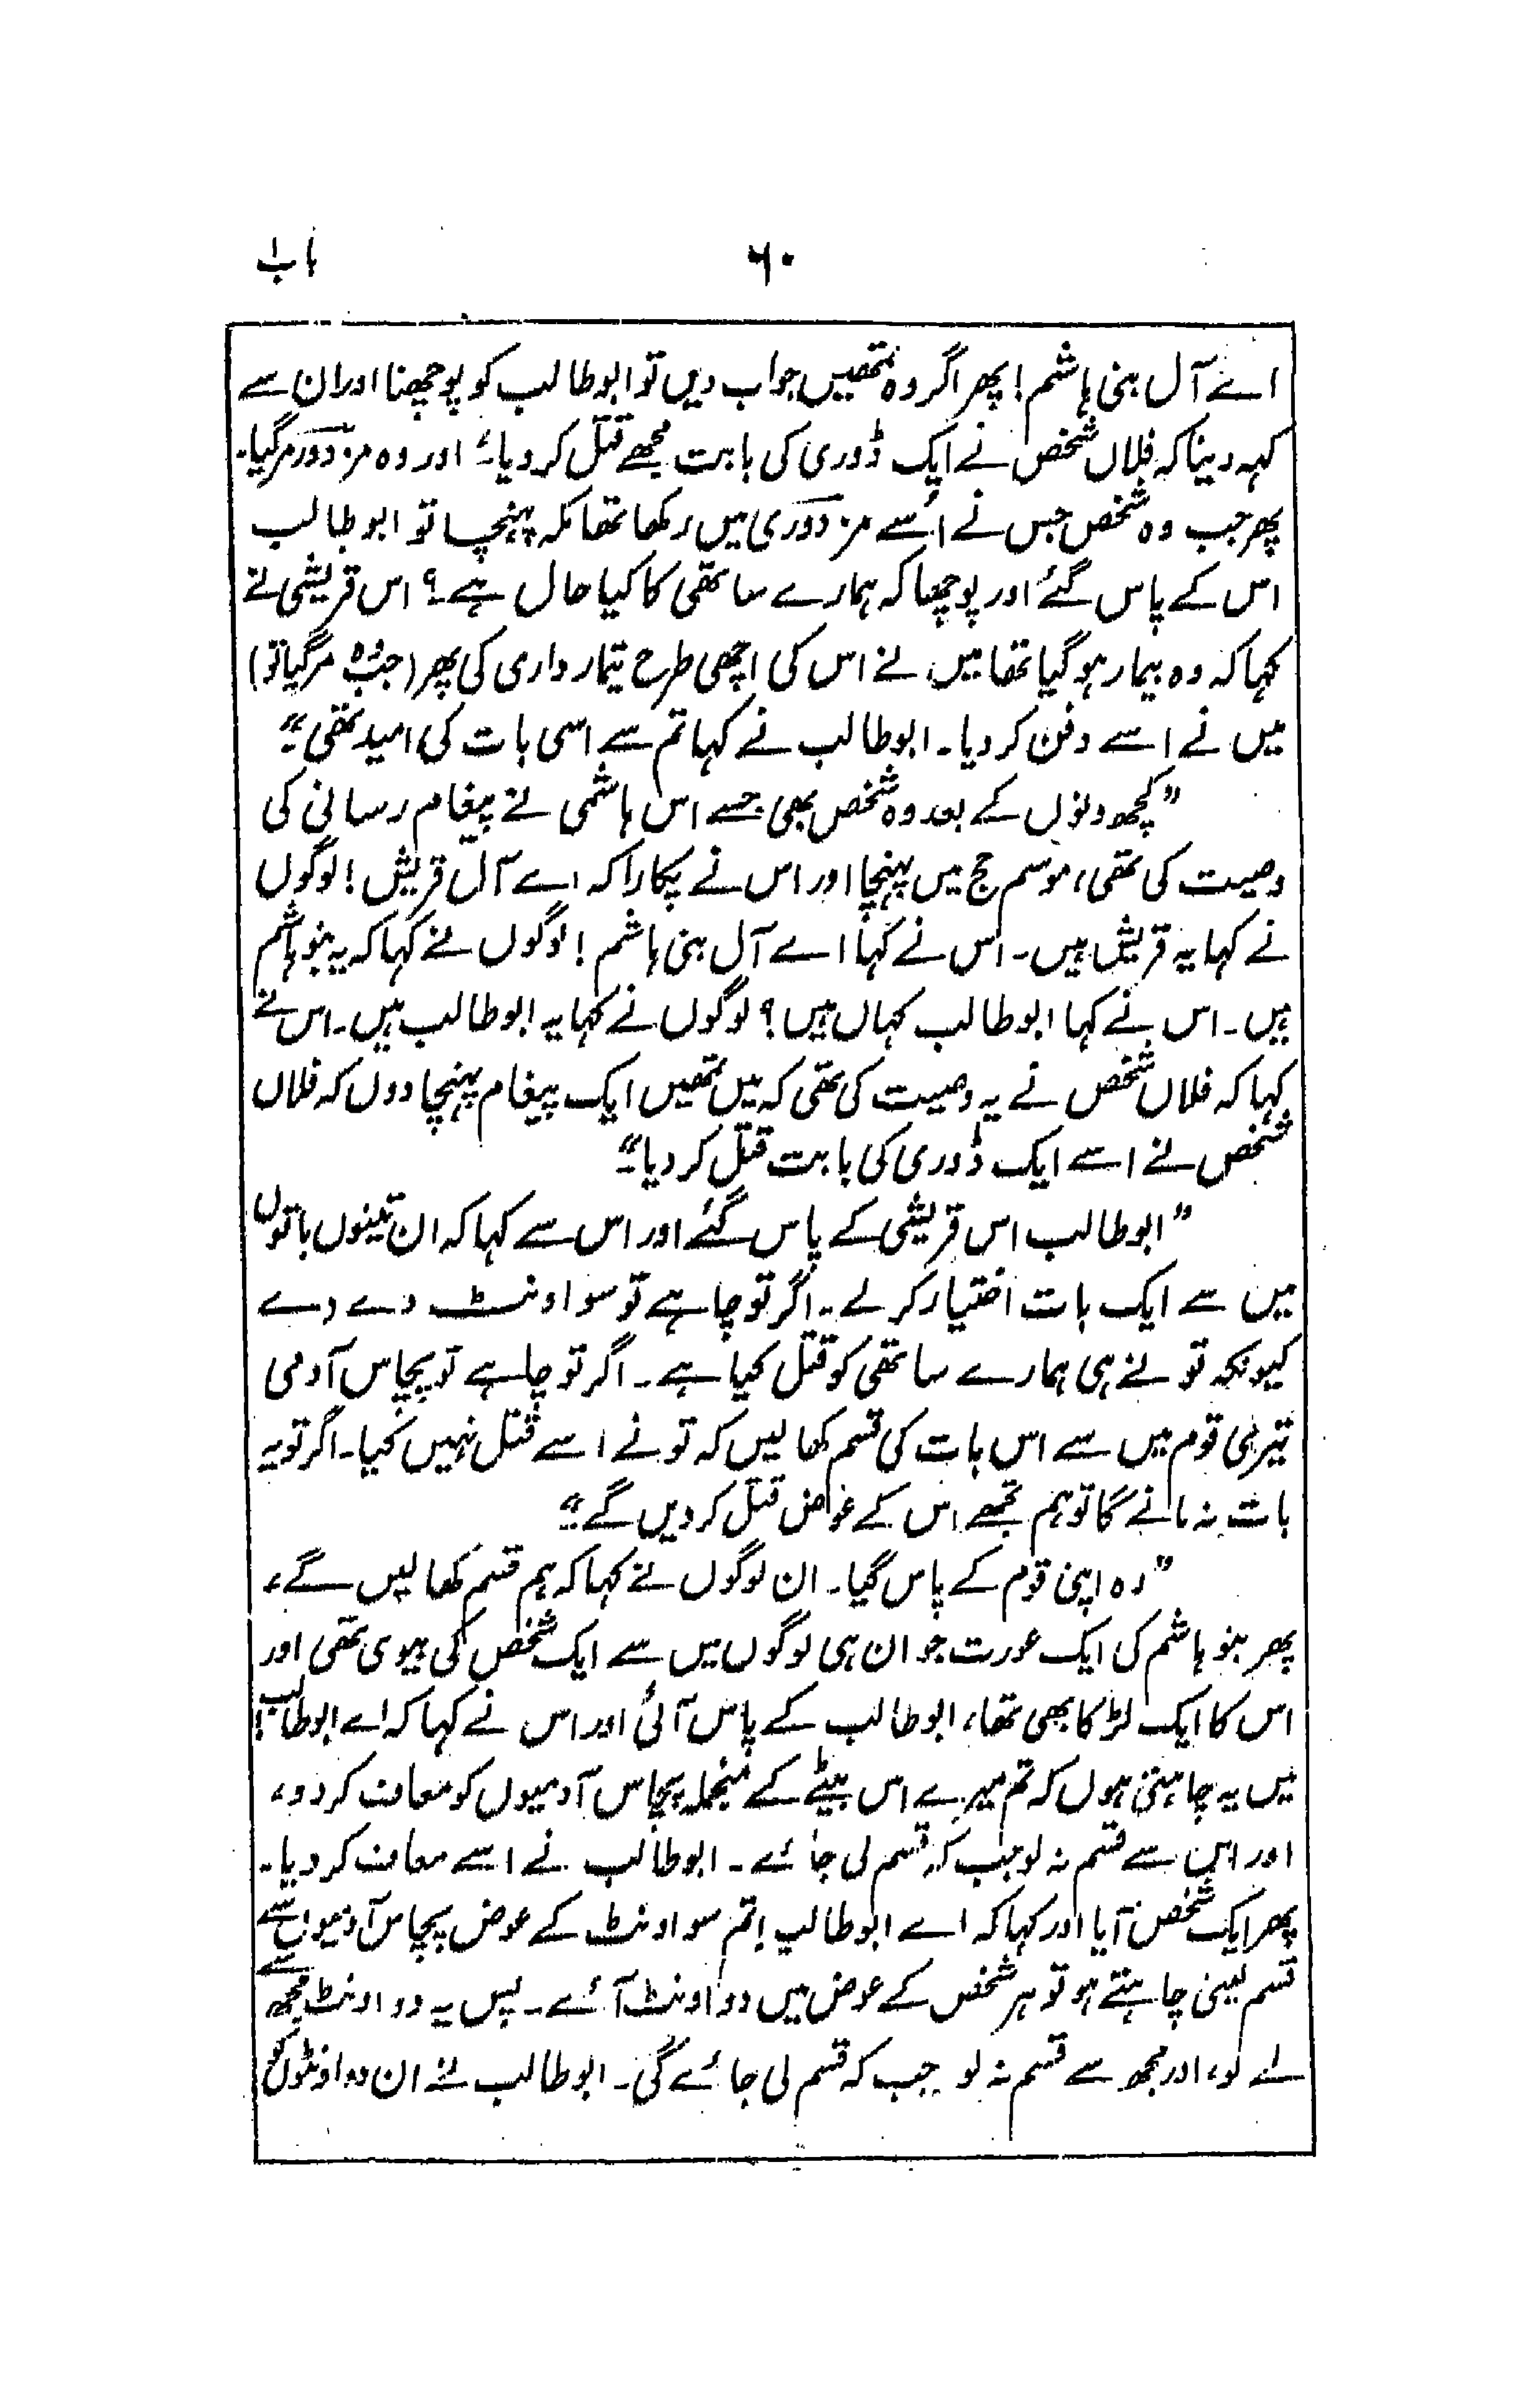 باب ۱
۶۰
اے آل بنی ہاشم! پھر اگر وہ تمھیں جواب دیں تو ابوطالب کو پوچھنا اور ان سے
کہہ دینا کہ فلاں شخص نے ایک ڈوری کی بابت مجھے قتل کر دیا۔‘ اور وہ مزدور مر گیا۔
پھر جب وہ شخص جس نے اُسے مزدوری میں رکھا تھا مکہ پہنچا تو ابوطالب
اس کے پاس گئے اور پوچھا کہ ہمارے ساتھی کا کیا حال ہے؟ اس قریشی نے
کہا کہ وہ بیمار ہو گیا تھا میں نے اس کی اچھی طرح تیمار داری کی پھر (جب وہ مر گیا تو)
میں نے اسے دفن کر دیا۔ ابوطالب نے کہا تم سے اسی بات کی امید تھی۔“
”کچھ دنوں کے بعد وہ شخص بھی جسے اس ہاشمی نے پیغام رسانی کی
وصیت کی تھی، موسم حج میں پہنچا اور اس نے پکارا کہ اے آل قریش! لوگوں
نے کہا یہ قریش ہیں۔ اس نے کہا اے آل بنی ہاشم! لوگوں نے کہا کہ یہ بنو ہاشم
ہیں۔ اس نے کہا ابوطالب کہاں ہیں؟ لوگوں نے کہا یہ ابوطالب ہیں۔ اس نے
کہا کہ فلاں شخص نے یہ وصیت کی تھی کہ میں تمھیں ایک پیغام پہنچا دوں کہ فلاں
شخص نے اسے ایک ڈوری کی بابت قتل کر دیا۔“
”ابوطالب اس قریشی کے پاس گئے اور اس سے کہا کہ ان تینوں باتوں
میں سے ایک بات اختیار کر لے۔ اگر تو چاہے تو سو اونٹ دے دے
کیونکہ تو نے ہی ہمارے ساتھی کو قتل کیا ہے۔ اگر تو چاہے تو پچاس آدمی
تیری قوم میں سے اس بات کی قسم کھا لیں کہ تو نے اسے قتل نہیں کیا۔ اگر تو یہ
بات نہ مانے گا تو ہم تجھے اس کے عوض قتل کر دیں گے۔“
”وہ اپنی قوم کے پاس گیا۔ ان لوگوں نے کہا کہ ہم قسم کھا لیں گے،
پھر بنو ہاشم کی ایک عورت جو ان ہی لوگوں میں سے ایک شخص کی بیوی تھی اور
اس کا ایک لڑکا بھی تھا، ابوطالب کے پاس آئی اور اس نے کہا کہ اے ابوطالب!
میں یہ چاہتی ہوں کہ تم میرے اس بیٹے کے منجملہ پچاس آدمیوں کو معاف کر دو،
اور اس سے قسم نہ لو جب کہ قسم لی جائے۔ ابوطالب نے اسے معاف کر دیا۔
پھر ایک شخص آیا اور کہا کہ اے ابوطالب! تم سو اونٹ کے عوض پچاس آدمیوں سے
قسم لینی چاہتے ہو تو ہر شخص کے عوض میں دو اونٹ آئے۔ پس یہ دو اونٹ مجھ سے
لے لو، اور مجھ سے قسم نہ لو جب کہ قسم لی جائے گی۔ ابوطالب نے ان دو اونٹوں کو